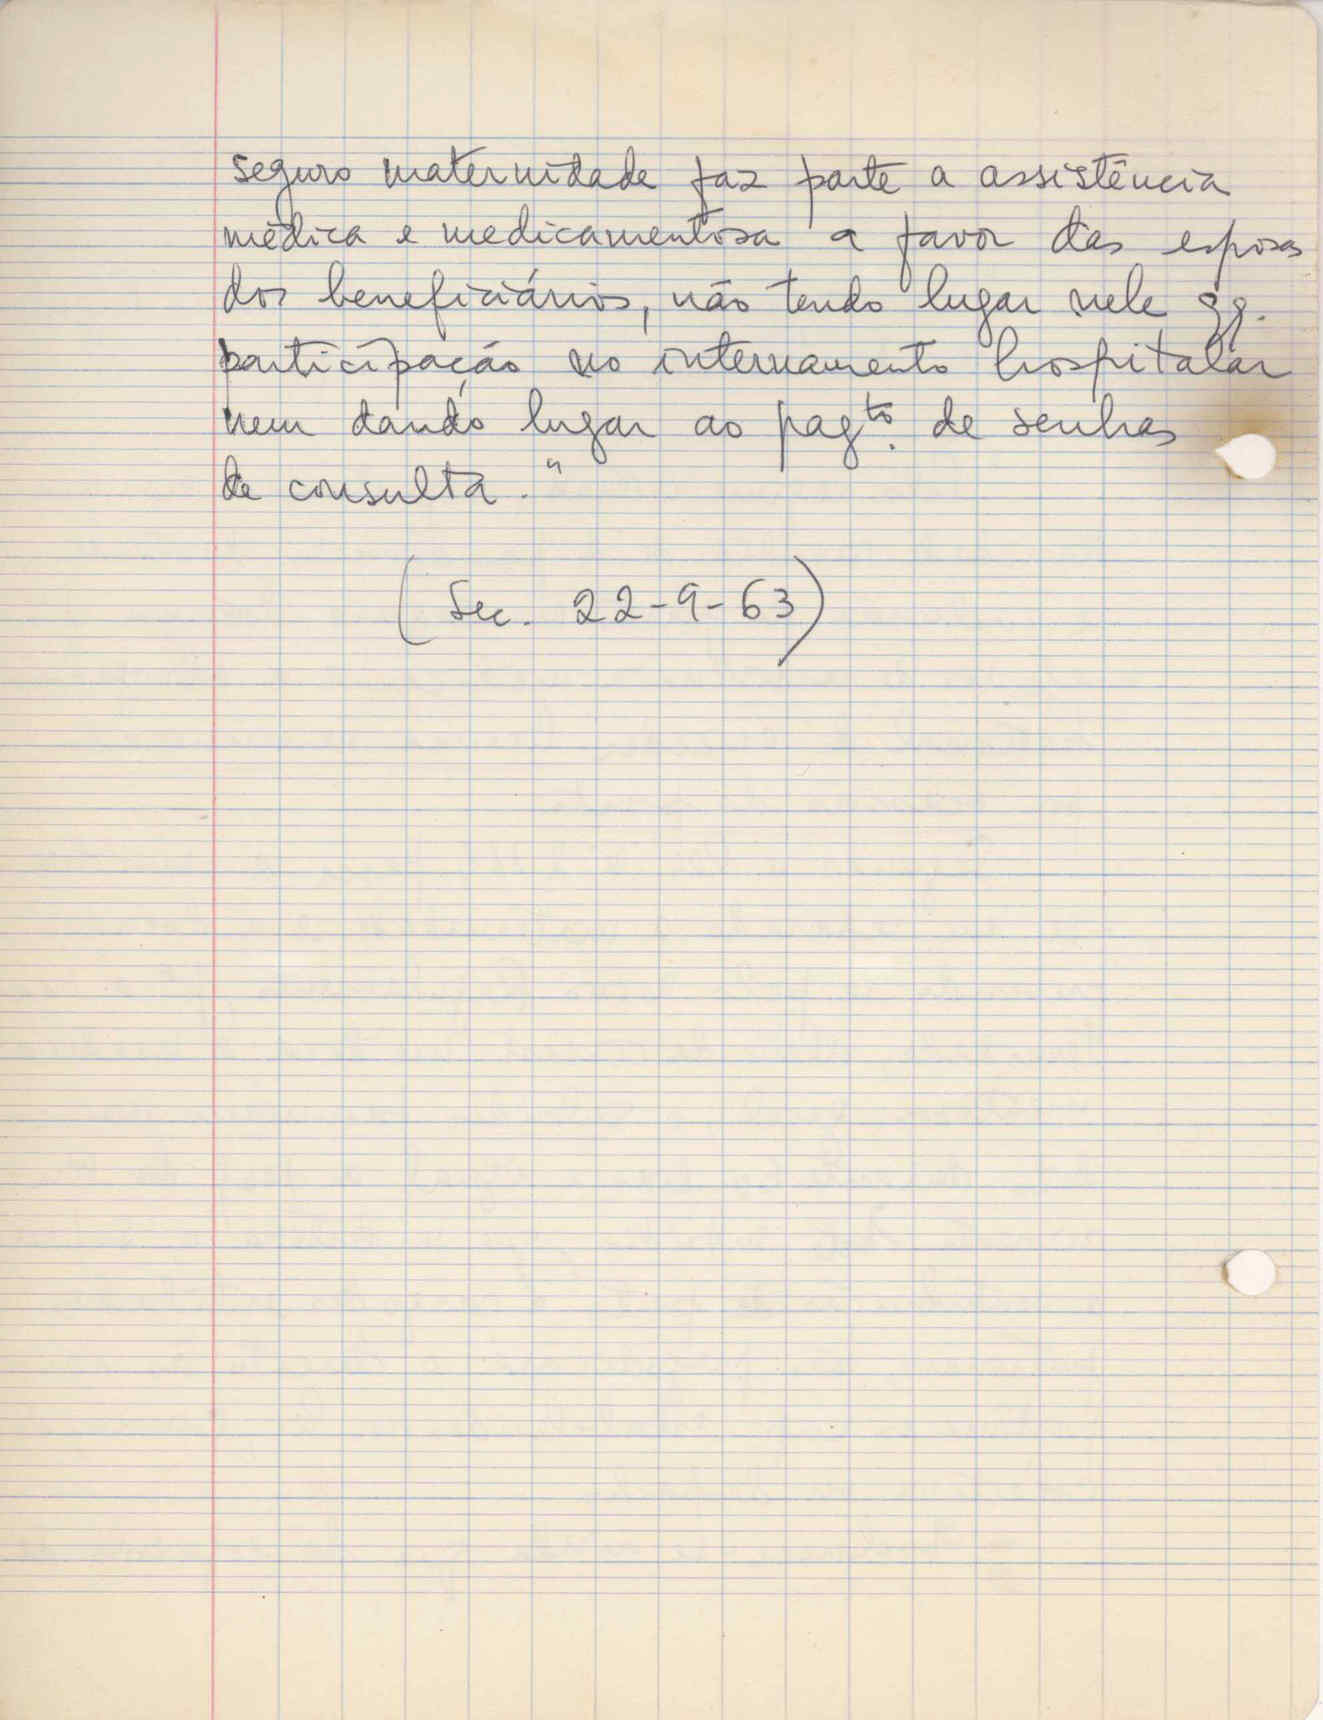 seguro maternidade faz parte a assistência
médica e medicamentosa a favor das esposas
dos beneficiários, não tendo lugar nele qq.
participação no internamento hospitalar
nem dando lugar ao pagto. de senhas
de consulta."
(Sec. 22-9-63)